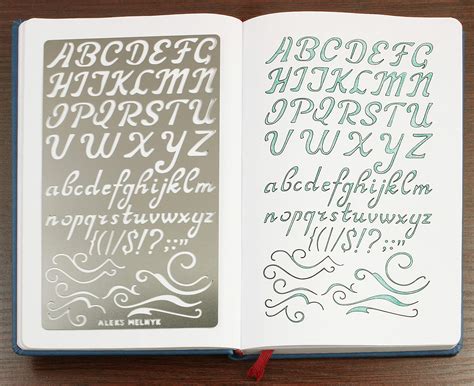 ABCDEFG
HIJKLMN
OPQRSTU
VWXYZ
abcdefghijklm
nopqrstuvwxyz
{(|/$!?;:"
ALEKS MELNYK
ABCDEFG
HIJKLMN
OPQRSTU
VWXYZ
abcdefghijklm
nopqrstuvwxyz
{(|/$!?;:"